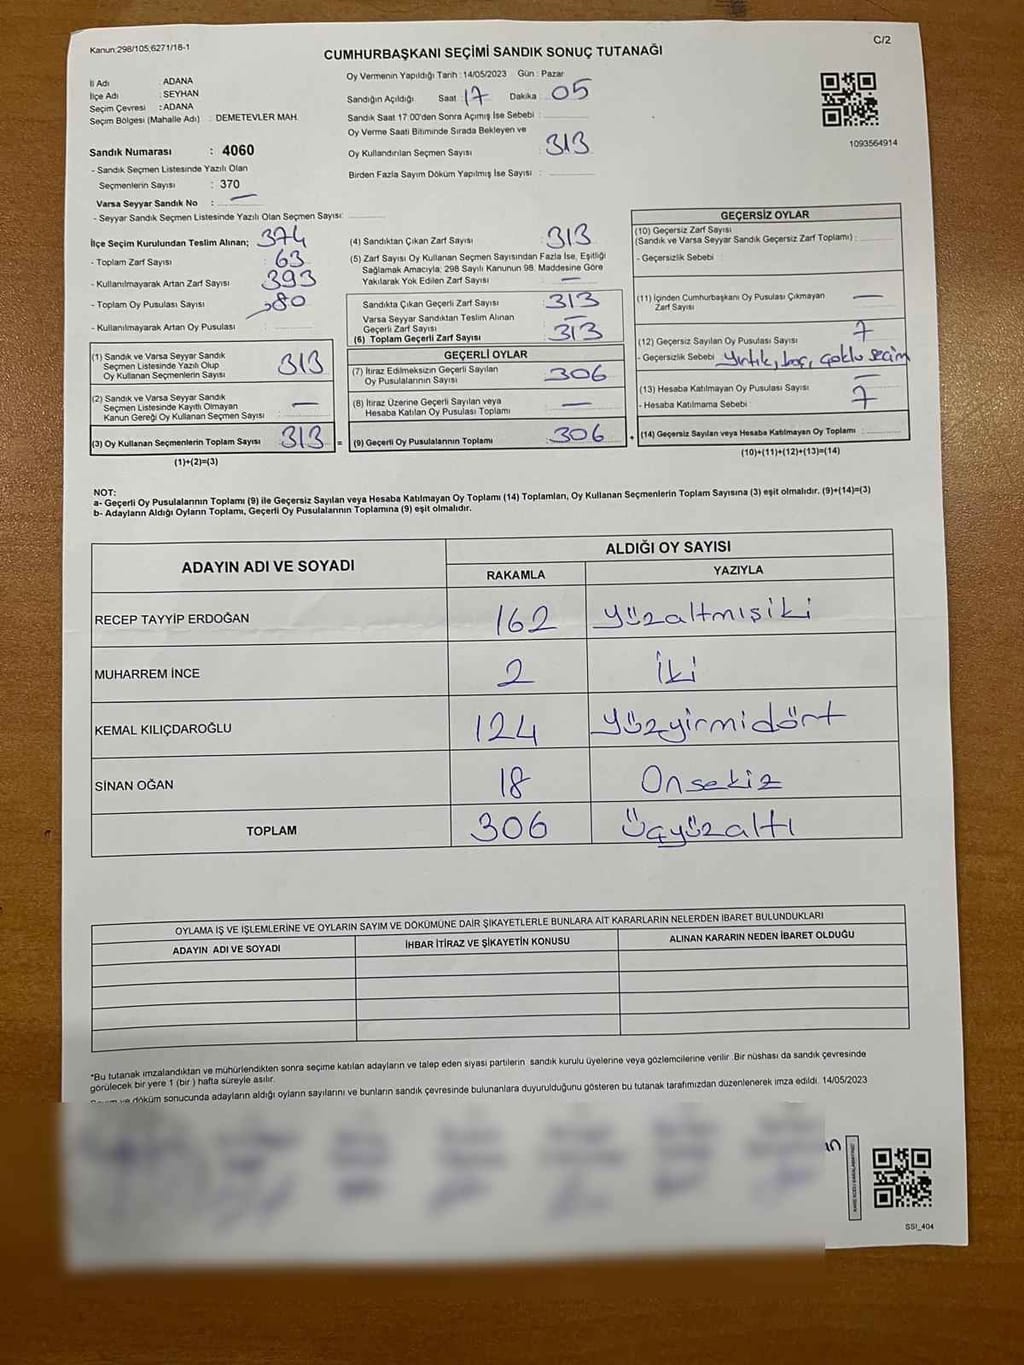 Kanun:298/105;6271/18-1
C/2
CUMHURBAŞKANI SEÇİMİ SANDIK SONUÇ TUTANAĞI
İl Adı : ADANA
İlçe Adı : SEYHAN
Seçim Çevresi : ADANA
Seçim Bölgesi (Mahalle Adı) : DEMETEVLER MAH.
Sandık Numarası : 4060
- Sandık Seçmen Listesinde Yazılı Olan
Seçmenlerin Sayısı : 370
Varsa Seyyar Sandık No : —
- Seyyar Sandık Seçmen Listesinde Yazılı Olan Seçmen Sayısı:
Oy Vermenin Yapıldığı Tarih : 14/05/2023 Gün : Pazar
Sandığın Açıldığı Saat 17 Dakika 05
Sandık Saat 17:00'den Sonra Açımış İse Sebebi :
Oy Verme Saati Bitiminde Sırada Bekleyen ve
Oy Kullandırılan Seçmen Sayısı : 313
Birden Fazla Sayım Döküm Yapılmış İse Sayısı :
1093564914
İlçe Seçim Kurulundan Teslim Alınan; 374
- Toplam Zarf Sayısı 63
- Kullanılmayarak Artan Zarf Sayısı 393
- Toplam Oy Pusulası Sayısı 80
- Kullanılmayarak Artan Oy Pusulası
(1) Sandık ve Varsa Seyyar Sandık
Seçmen Listesinde Yazılı Olup
Oy Kullanan Seçmenlerin Sayısı 313
(2) Sandık ve Varsa Seyyar Sandık
Seçmen Listesinde Kayıtlı Olmayan
Kanun Gereği Oy Kullanan Seçmen Sayısı —
(3) Oy Kullanan Seçmenlerin Toplam Sayısı 313 =
(1)+(2)=(3)
(4) Sandıktan Çıkan Zarf Sayısı 313
(5) Zarf Sayısı Oy Kullanan Seçmen Sayısından Fazla İse, Eşitliği
Sağlamak Amacıyla; 298 Sayılı Kanunun 98. Maddesine Göre
Yakılarak Yok Edilen Zarf Sayısı : —
Sandıkta Çıkan Geçerli Zarf Sayısı : 313
Varsa Seyyar Sandıktan Teslim Alınan
Geçerli Zarf Sayısı —
(6) Toplam Geçerli Zarf Sayısı 313
GEÇERLİ OYLAR
(7) İtiraz Edilmeksizin Geçerli Sayılan
Oy Pusulalarının Sayısı : 306
(8) İtiraz Üzerine Geçerli Sayılan veya
Hesaba Katılan Oy Pusulası Toplamı : —
(9) Geçerli Oy Pusulalarının Toplamı : 306 +
GEÇERSİZ OYLAR
(10) Geçersiz Zarf Sayısı
(Sandık ve Varsa Seyyar Sandık Geçersiz Zarf Toplamı) :
- Geçersizlik Sebebi
(11) İçinden Cumhurbaşkanı Oy Pusulası Çıkmayan
Zarf Sayısı —
(12) Geçersiz Sayılan Oy Pusulası Sayısı 7
- Geçersizlik Sebebi Yırtık, boş, çoklu seçim
(13) Hesaba Katılmayan Oy Pusulası Sayısı —
- Hesaba Katılmama Sebebi 7
(14) Geçersiz Sayılan veya Hesaba Katılmayan Oy Toplamı
(10)+(11)+(12)+(13)=(14)
NOT:
a- Geçerli Oy Pusulalarının Toplamı (9) ile Geçersiz Sayılan veya Hesaba Katılmayan Oy Toplamı (14) Toplamları, Oy Kullanan Seçmenlerin Toplam Sayısına (3) eşit olmalıdır. (9)+(14)=(3)
b- Adayların Aldığı Oyların Toplamı, Geçerli Oy Pusulalarının Toplamına (9) eşit olmalıdır.
ADAYIN ADI VE SOYADI
ALDIĞI OY SAYISI
RAKAMLA YAZIYLA
RECEP TAYYİP ERDOĞAN 162 Yüzaltmışiki
MUHARREM İNCE 2 İki
KEMAL KILIÇDAROĞLU 124 Yüzyirmidört
SİNAN OĞAN 18 Onsekiz
TOPLAM 306 Üçyüzaltı
OYLAMA İŞ VE İŞLEMLERİNE VE OYLARIN SAYIM VE DÖKÜMÜNE DAİR ŞİKAYETLERLE BUNLARA AİT KARARLARIN NELERDEN İBARET BULUNDUKLARI
ADAYIN ADI VE SOYADI İHBAR İTİRAZ VE ŞİKAYETİN KONUSU ALINAN KARARIN NEDEN İBARET OLDUĞU
*Bu tutanak imzalandıktan ve mühürlendikten sonra seçime katılan adayların ve talep eden siyasi partilerin sandık kurulu üyelerine veya gözlemcilerine verilir. Bir nüshası da sandık çevresinde
görülecek bir yere 1 (bir) hafta süreyle asılır.
ve döküm sonucunda adayların aldığı oyların sayılarını ve bunların sandık çevresinde bulunanlara duyurulduğunu gösteren bu tutanak tarafımızdan düzenlenerek imza edildi. 14/05/2023
SSI_404